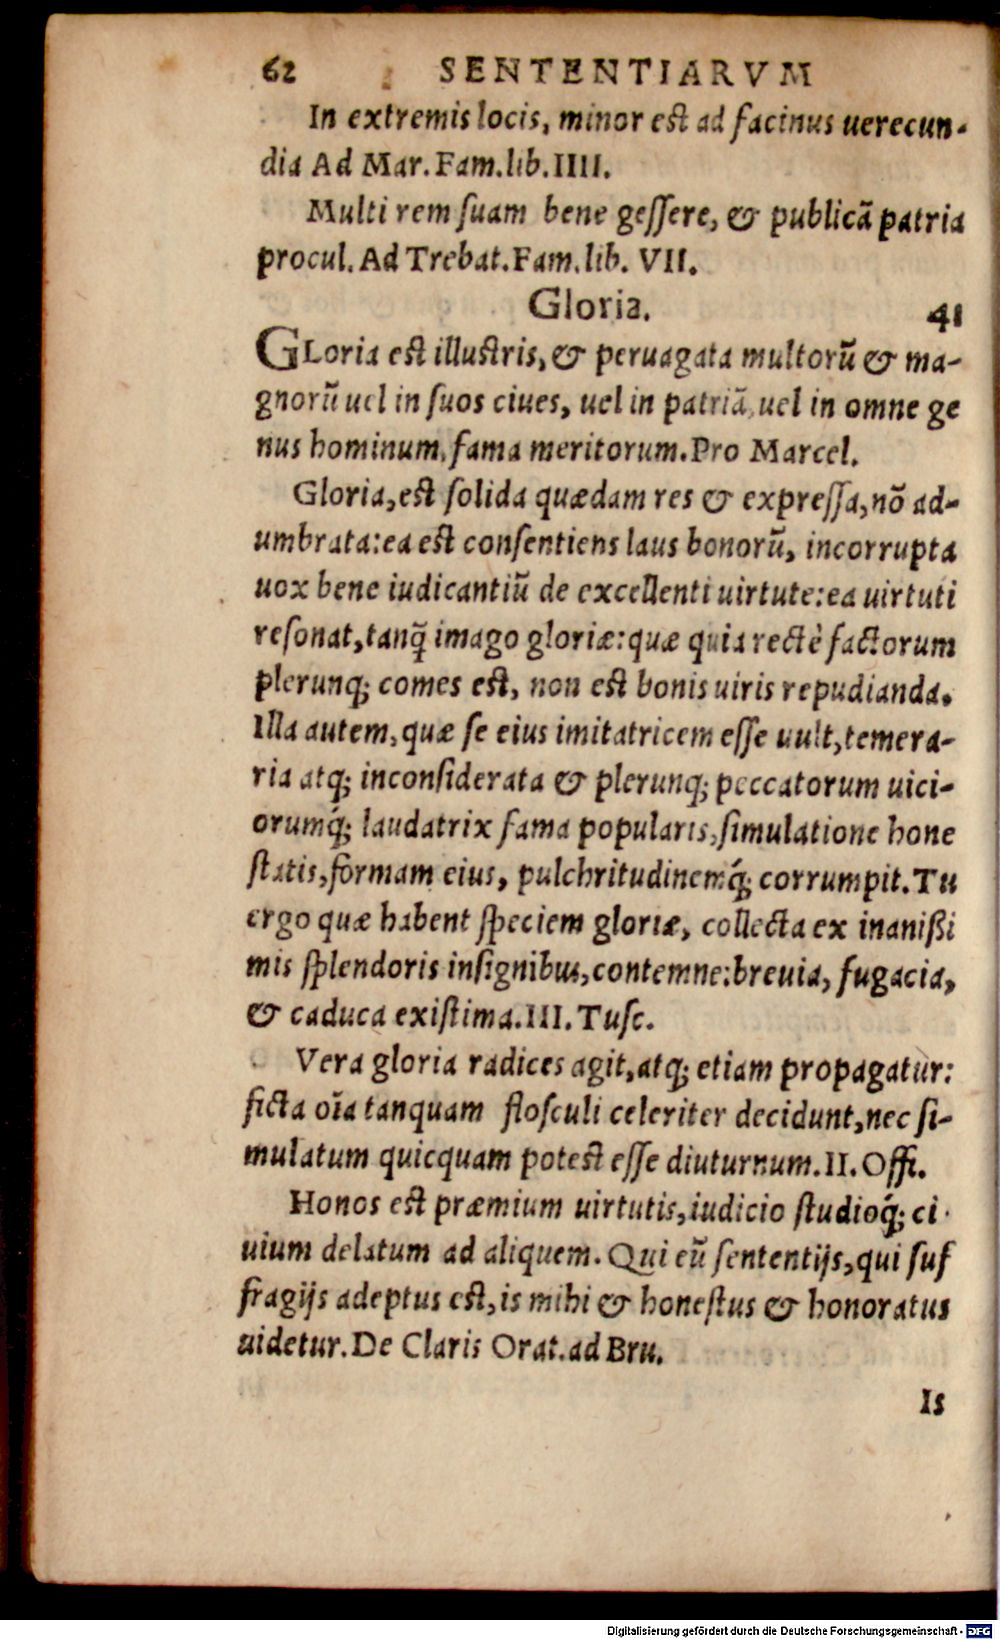 62 SENTENTIARVM
In extremis locis, minor est ad facinus uerecun-
dia Ad Mar. Fam. lib. IIII.
Multi rem suam bene gessere, & publicā patria
procul. Ad Trebat. Fam. lib. VII.
Gloria. 41
GLoria est illustris, & peruagata multorū & ma-
gnorū uel in suos ciues, uel in patriā, uel in omne ge
nus hominum, fama meritorum. Pro Marcel.
Gloria, est solida quædam res & expressa, nō ad-
umbrata: ea est consentiens laus bonorū, incorrupta
uox bene iudicantiū de excellenti uirtute: ea uirtuti
resonat, tanq̄ imago gloriæ: quæ quia rectè factorum
plerunq; comes est, non est bonis uiris repudianda.
Illa autem, quæ se eius imitatricem esse uult, temera-
ria atq; inconsiderata & plerunq; peccatorum uici-
orumq́; laudatrix fama popularis, simulatione hone
statis, formam eius, pulchritudinemq́; corrumpit. Tu
ergo quæ habent speciem gloriæ, collecta ex inanißi
mis splendoris insignibus, contemne: breuia, fugacia,
& caduca existima. III. Tusc.
Vera gloria radices agit, atq; etiam propagatur:
ficta oīa tanquam flosculi celeriter decidunt, nec si-
mulatum quicquam potest esse diuturnum. II. Offi.
Honos est præmium uirtutis, iudicio studioq́; ci-
uium delatum ad aliquem. Qui eū sententijs, qui suf
fragijs adeptus est, is mihi & honestus & honoratus
uidetur. De Claris Orat. ad Bru.
Is
Digitalisierung gefördert durch die Deutsche Forschungsgemeinschaft - DFG